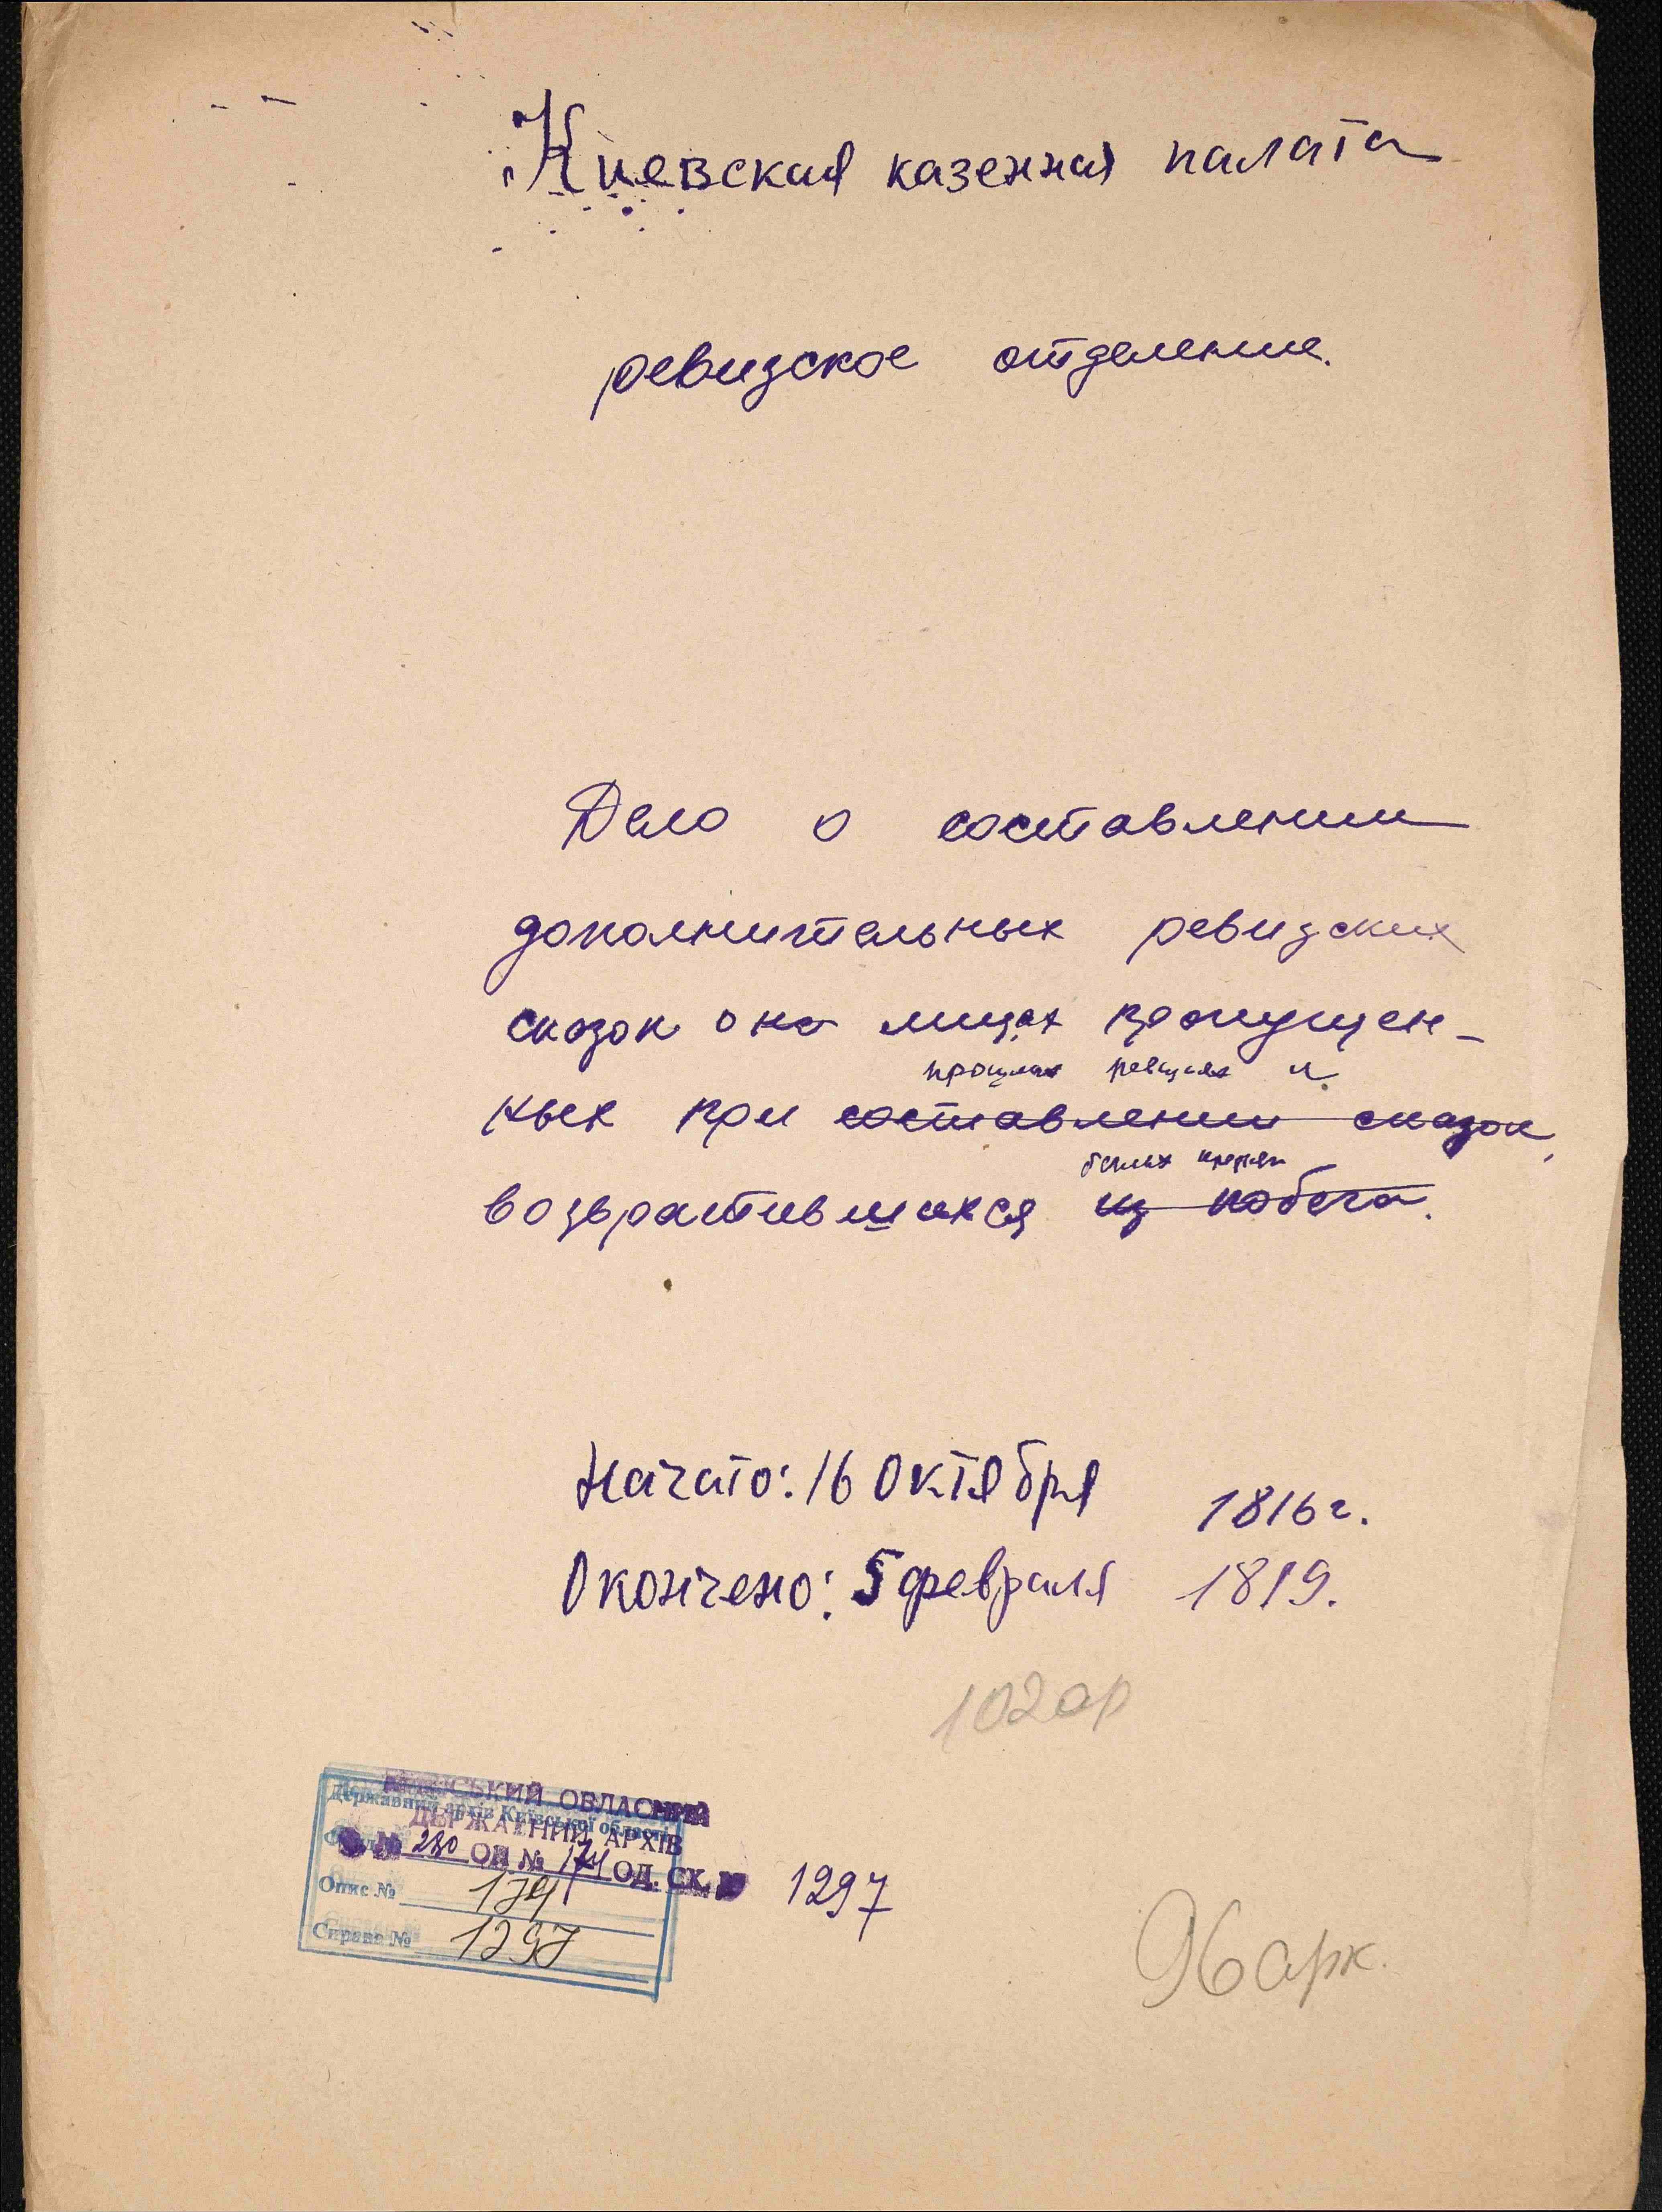 Киевская казенная палата
ревизское отделение.
Дело о составлении
дополнительных ревизских
сказок о на лицах пропущен-
прошлых ревизиях и
ных при составлении сказок,
беглых
возвратившихся из побега.
Начато: 16 Октября 1816 г.
Окончено: 5 февраля 1819.
102 ар
КИЇВСЬКИЙ ОБЛАСНИЙ
Державний архів Київської області
ДЕРЖАВНИЙ АРХІВ
№ 280 ОП № 174 ОД. СК. № 1297
Опис № 174
Справа № 1297
96 арк.